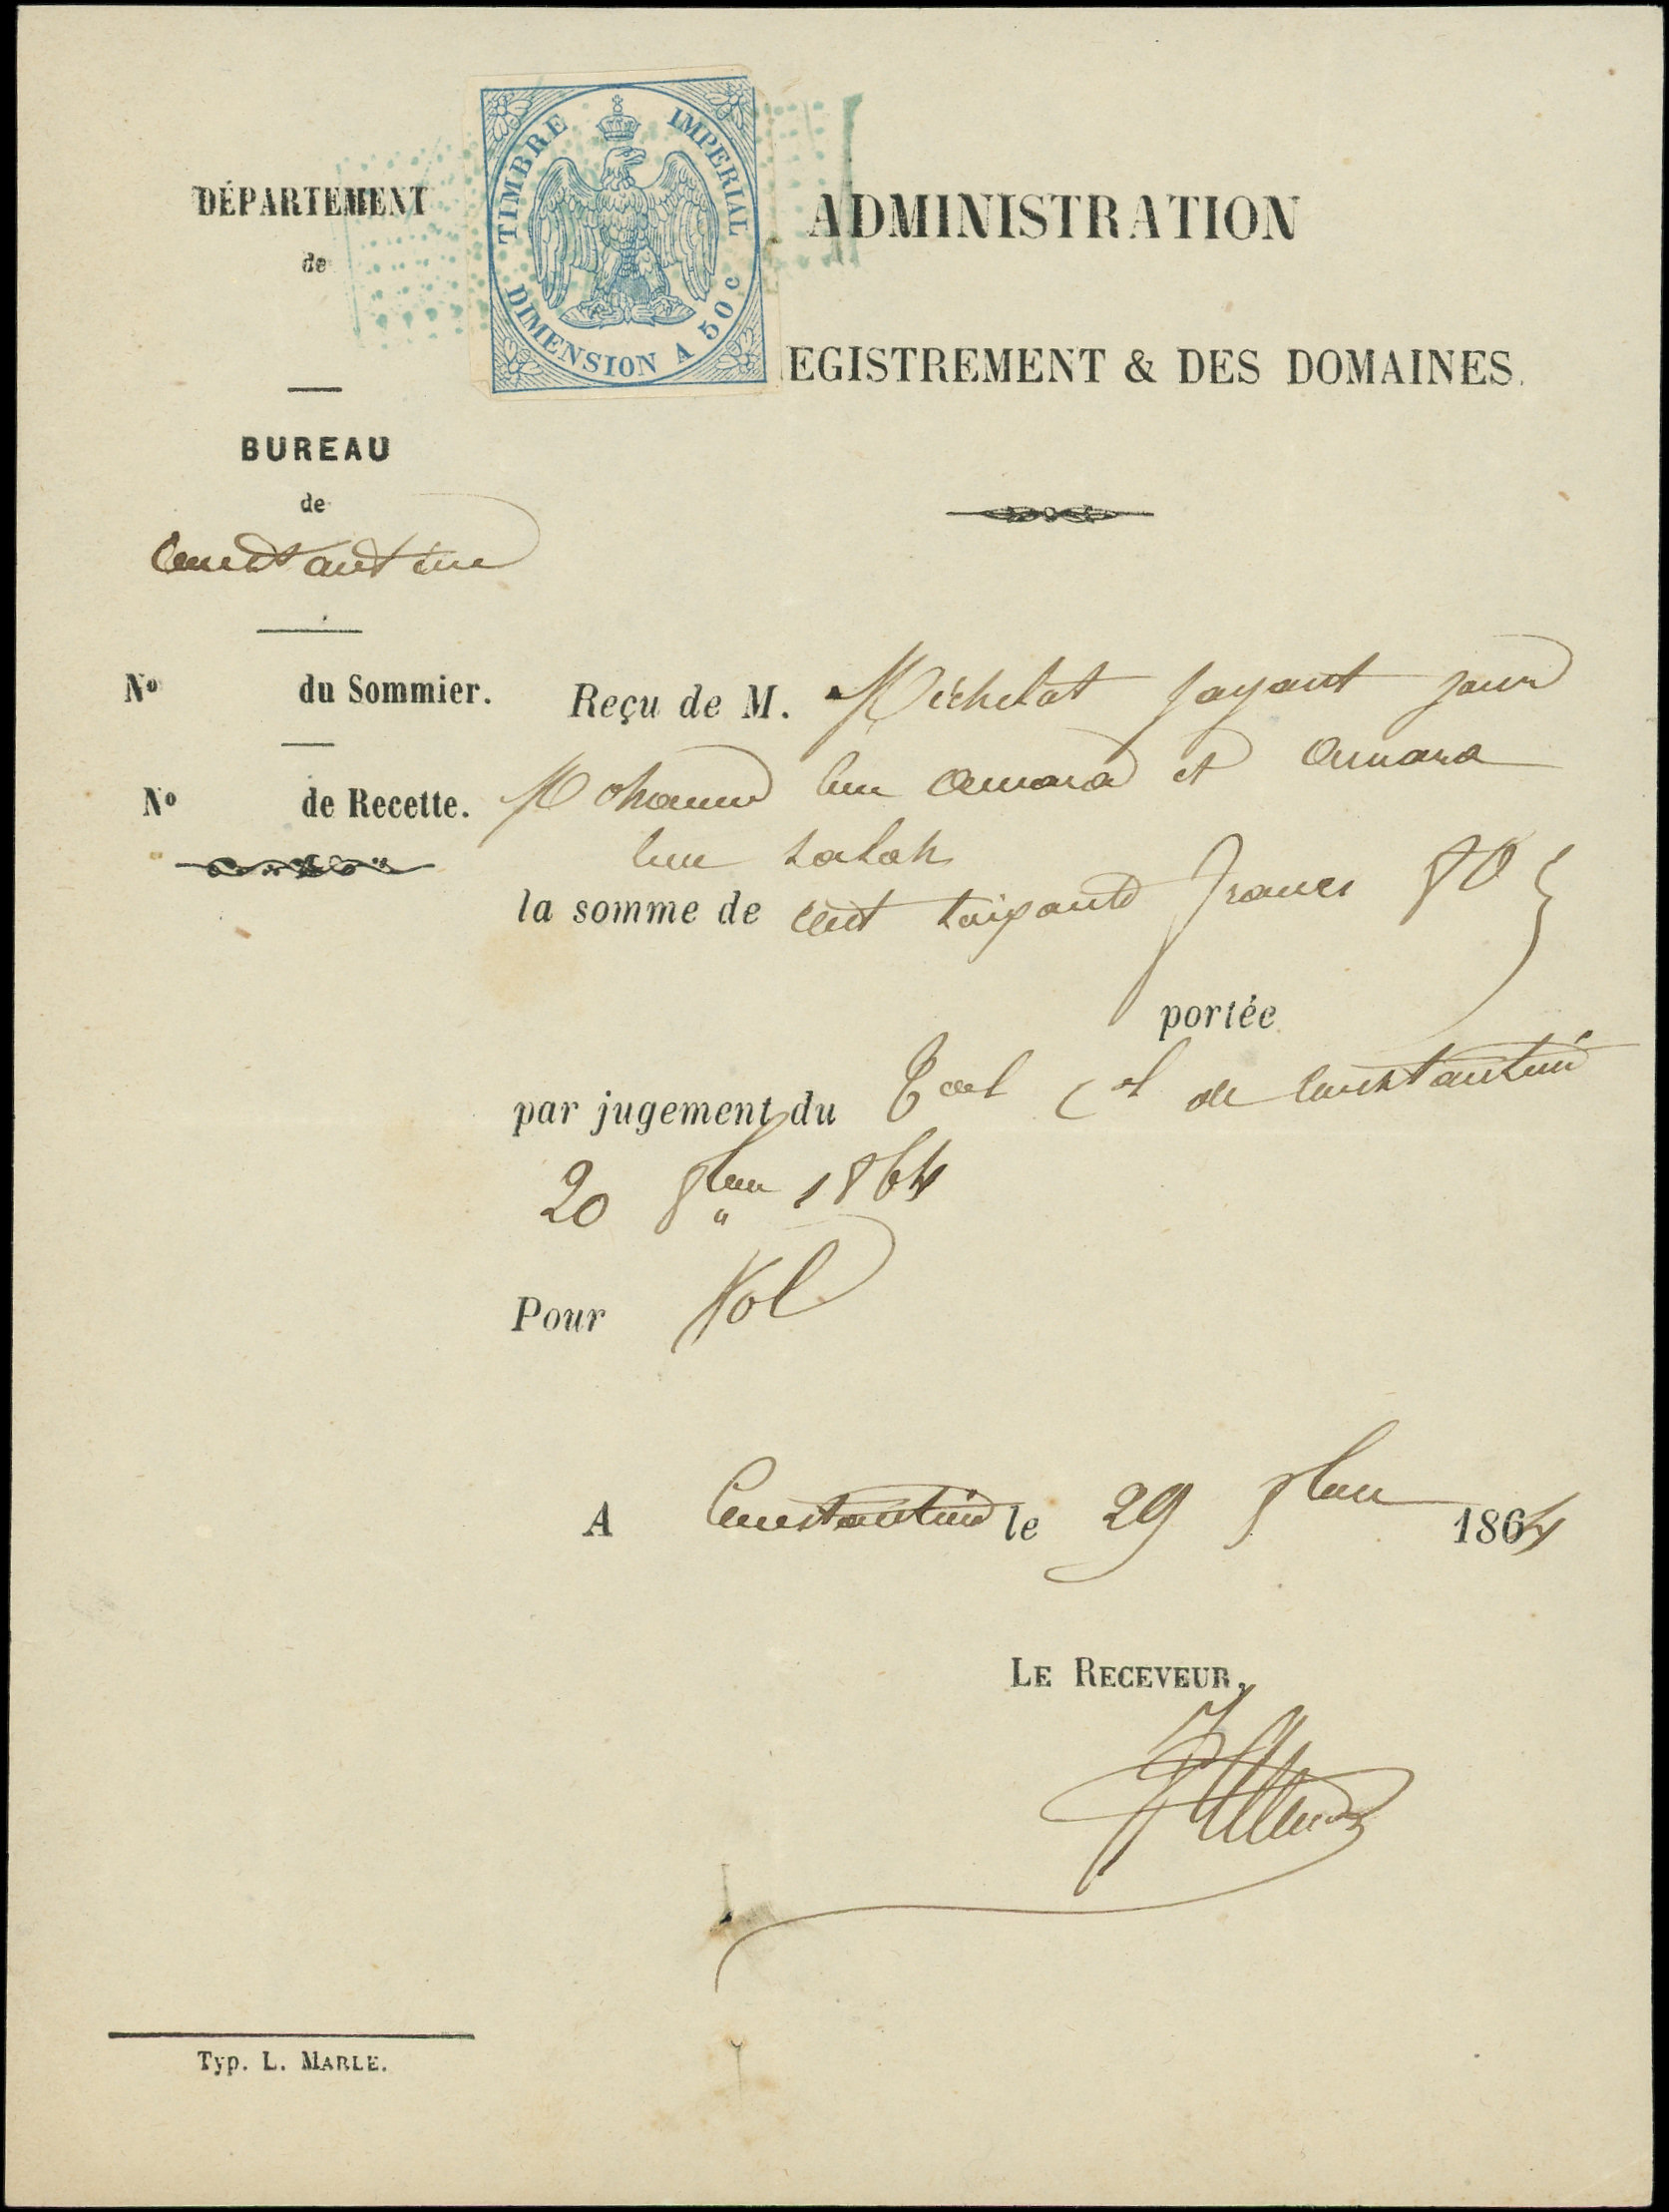 DÉPARTEMENT
de
TIMBRE IMPERIAL
DIMENSION A 50 c
ADMINISTRATION
EGISTREMENT & DES DOMAINES.
BUREAU
de
Constantine
No du Sommier.
Reçu de M. Michelat payant pour
No de Recette.
Mohamed ben Amara et Amara
ben Salah
la somme de cent soixante francs 80
portée
par jugement du Tal Cel de Constantine
20 8bre 1864
Pour Vol
A Constantine le 29 8bre 1864
LE RECEVEUR,
Typ. L. MARLE.